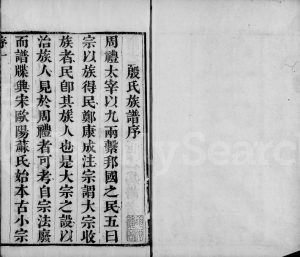 殷氏族譜序
周禮太宰以九兩繫邦國之民五曰
宗以族得民鄭康成注宗謂大宗收
族者民卽其族人也是大宗之設以
治族人見於周禮者可考自宗法廢
而譜牒興宋歐陽蘇氏始本古小宗
序一